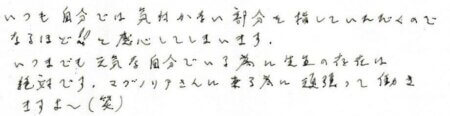 いつも自分では気付かない部分を指していただくので
なるほど!!と感心してしまいます。
いつまでも元気な自分でいる為に先生の存在は
絶対です。マグノリアさんに来る為に頑張って働き
ますよ〜(笑)